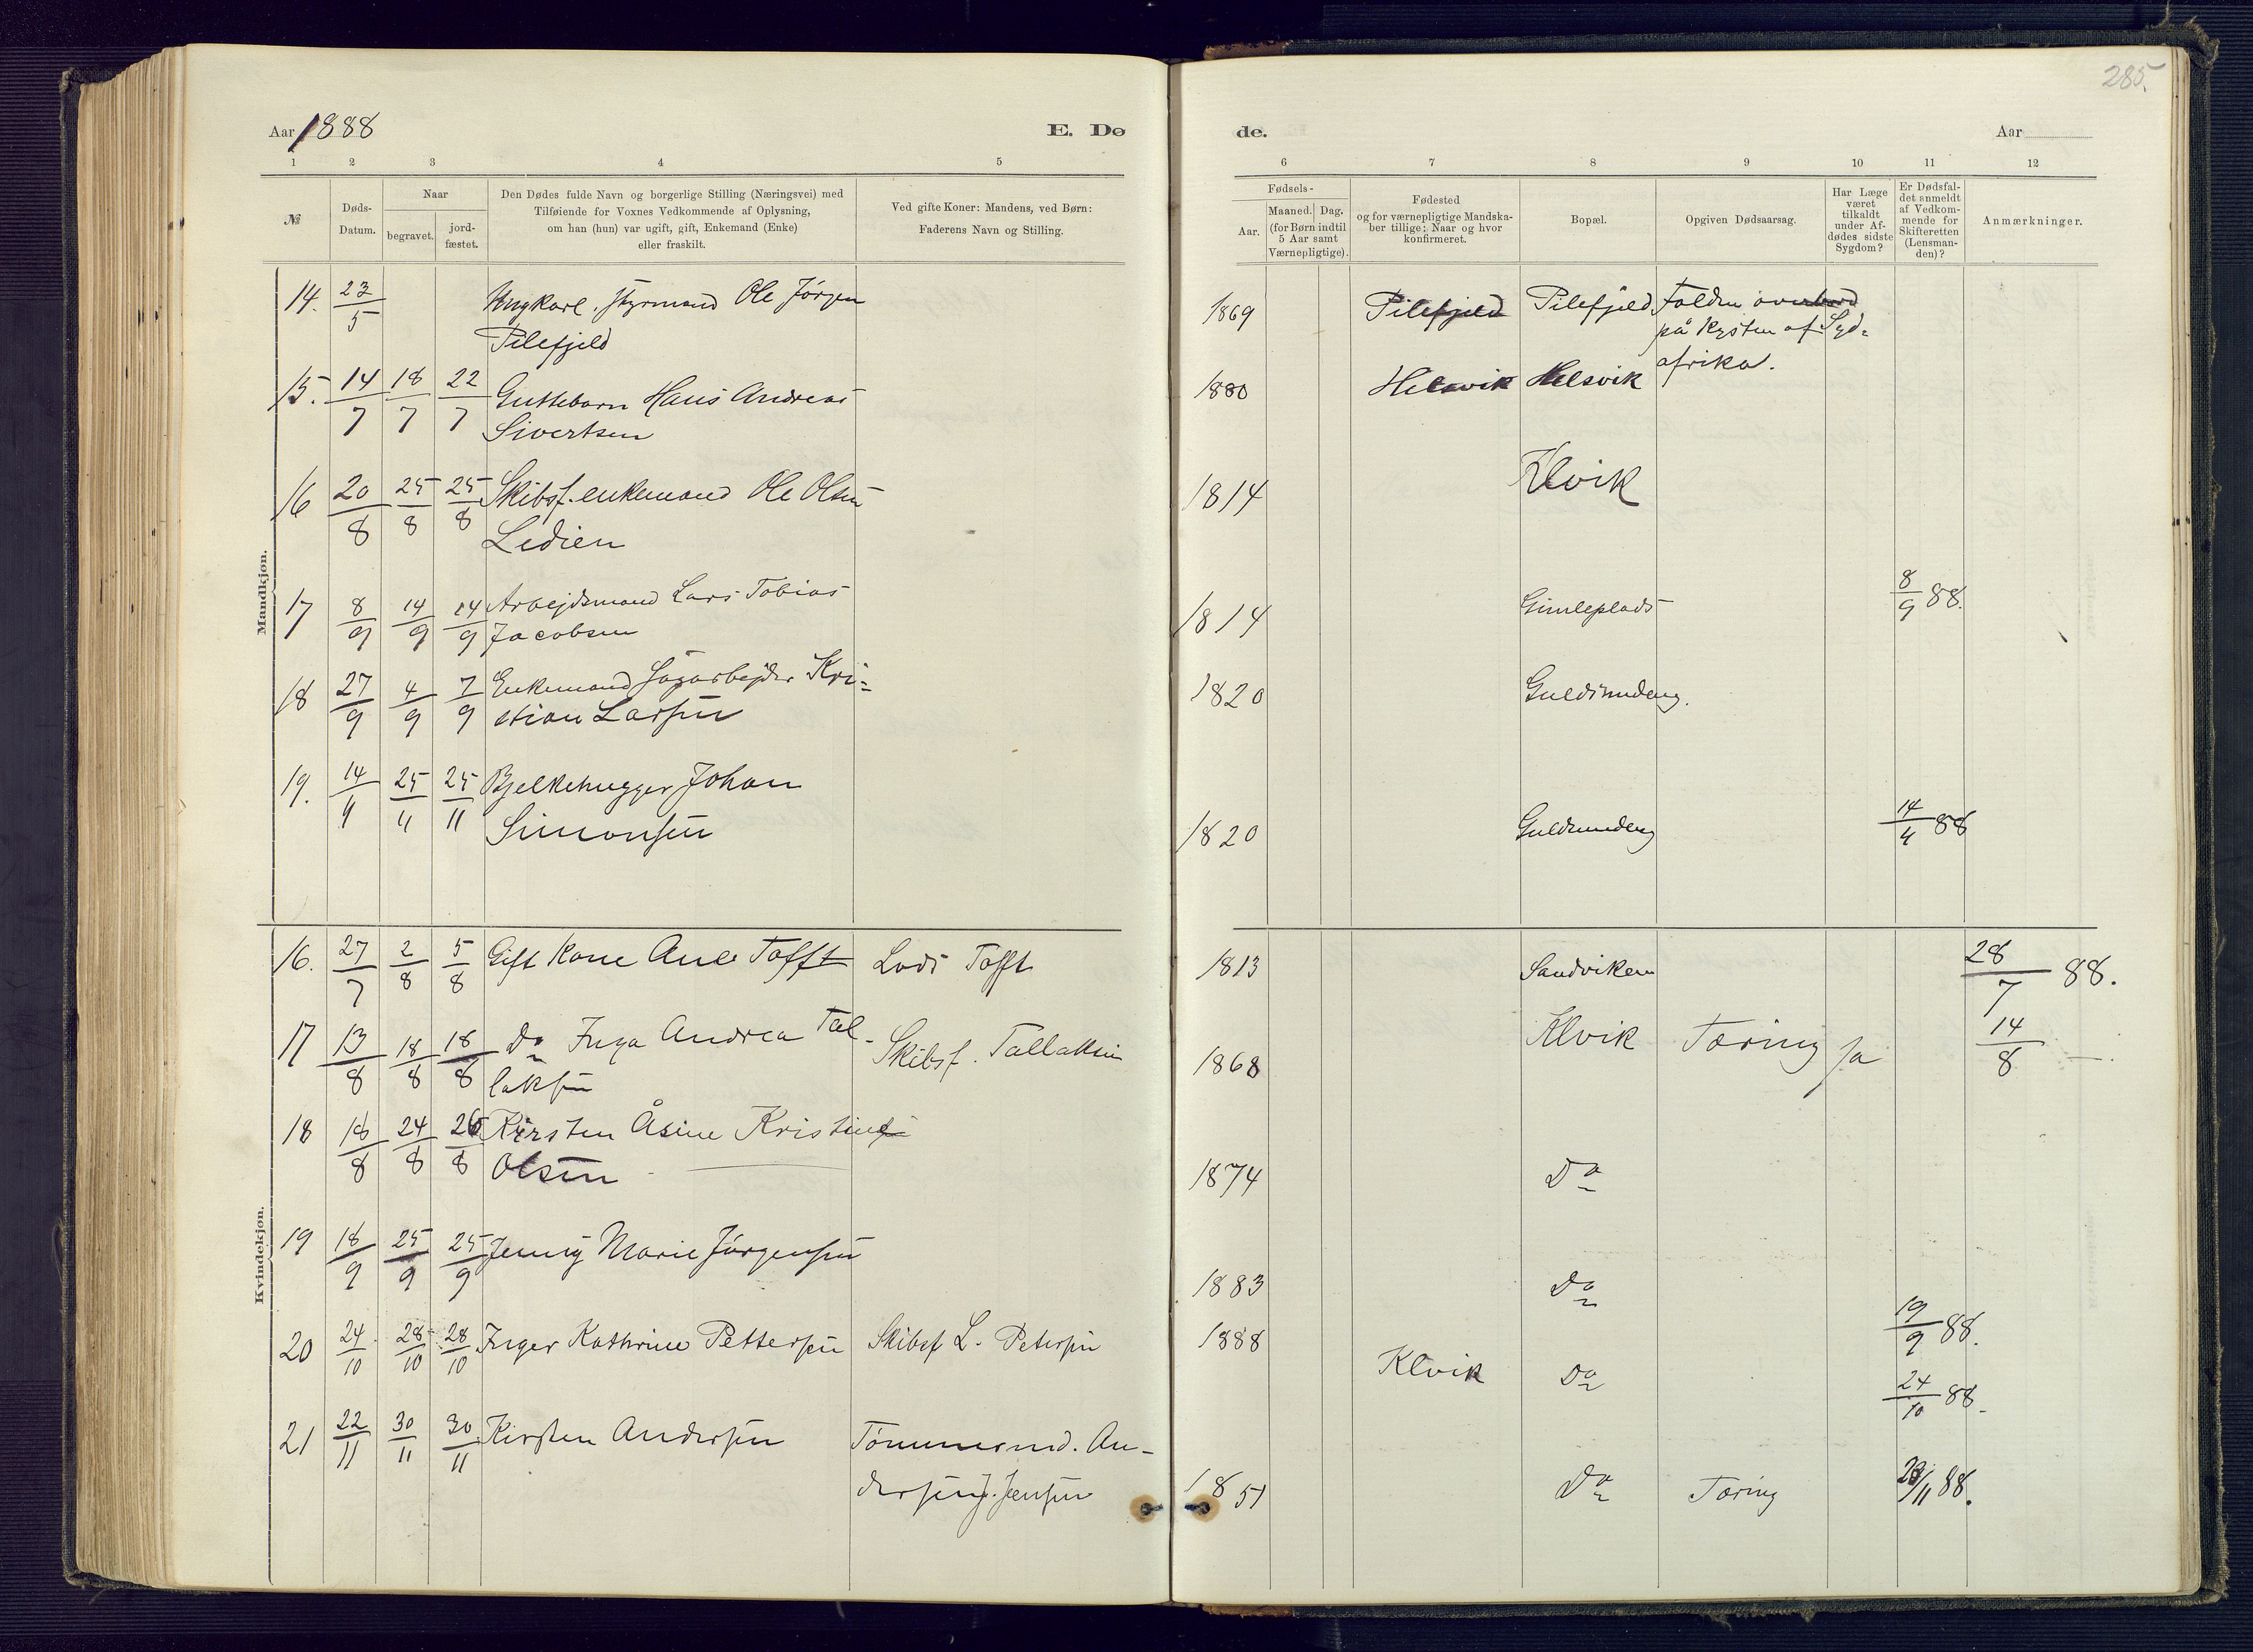 285.
Aar 1888 E. Dø de. Aar
1 2 3 4 5 6 7 8 9 10 11 12
№
Døds-
Datum.
Naar
begravet.
jord-
fæstet.
Den Dødes fulde Navn og borgerlige Stilling (Næringsvei) med
Tilføiende for Voxnes Vedkommende af Oplysning,
om han (hun) var ugift, gift, Enkemand (Enke)
eller fraskilt.
Ved gifte Koner: Mandens, ved Børn:
Faderens Navn og Stilling.
Fødsels-
Aar.
Maaned. Dag.
(for Børn indtil
5 Aar samt
Værnepligtige).
Fødested
og for værnepligtige Mandska-
ber tillige: Naar og hvor
konfirmeret.
Bopæl.
Opgiven Dødsaarsag.
Har Læge
været
tilkaldt
under Af-
dødes sidste
Sygdom?
Er Dødsfal-
det anmeldt
af Vedkom-
mende for
Skifteretten
(Lensman-
den)?
Anmærkninger.
Mandkjøn.
14. 23/5 Ungkarl. Styrmand Ole Jörgen 1869 Pilefjeld Pilefjeld Falden overbord
Pilefjeld på Kysten af Syd=
afrika.
15. 14/7 18/7 22/7 Guttebarn Hans Andreas 1880 Helsvik Helsvik
Sivertsen
16 20/8 25/8 25/8 Skibsf. enkemand Ole Olsen 1814 Kleivik
Ledien
17 8/9 14/9 14/9 Arbejdsmand Lars Tobias 1814 Gimleplads 8/9 88.
Jacobsen
18 27/9 4/9 7/9 Enkemand Sagarbejder Kri= 1820
stian Larsen
19. 14/11 25/11 25/11 Bjelkehugger Johan 1820 14/4 88
Simonsen
Kvindekjøn.
16. 27/7 2/8 5/8 Gift Kone Ane Tofft Lods Tofft 1813 Sandviken 28/7 88.
17 13/8 18/8 18/8 Do Inga Andrea Tal- Skibsf. Tallaksen 1868 Klvik Tæring Ja 14/8 —
laksen
18 18/8 24/8 26/8 Kirsten Åsine Kristine 1874 Do
Olsen
19 18/9 25/9 25/9 Jenny Marie Jörgensen 1883 Do 19/9 88.
20 24/10 28/10 28/10 Inger Kathrine Pettersen Skibsf L. Petersen 1888 Klvik Do 24/10 88.
21 22/11 30/11 30/11 Kirsten Andersen Tömmermd. An- 1851 Do Tæring 23/11 88.
dersen J. Jensen